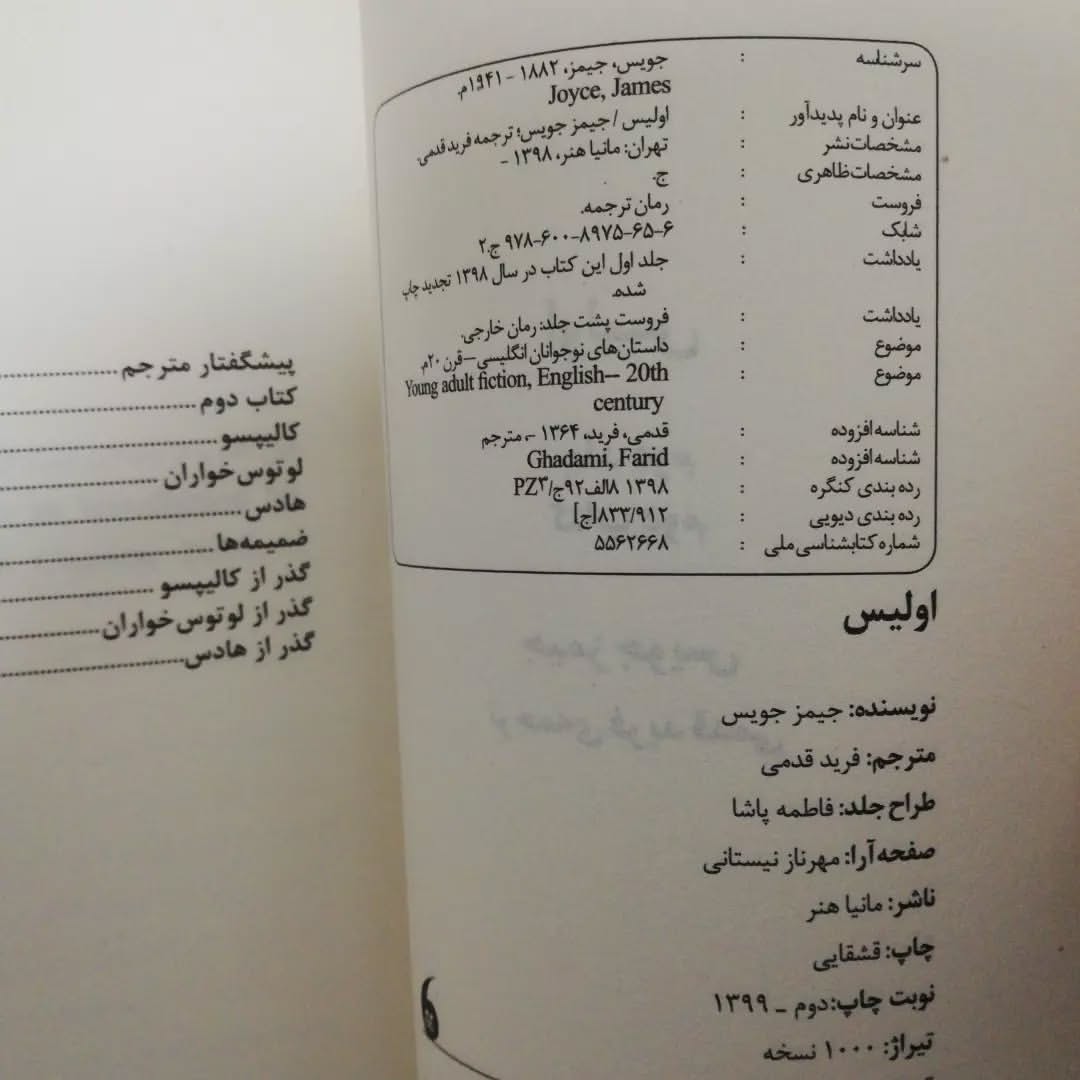 سرشناسه : جویس، جیمز، ۱۸۸۲ - ۱۹۴۱م.
Joyce, James
عنوان و نام پدیدآور : اولیس / جیمز جویس؛ ترجمه فرید قدمی.
مشخصات نشر : تهران: مانیا هنر، ۱۳۹۸ -
مشخصات ظاهری : ج.
فروست : رمان ترجمه.
شابک : ۹۷۸-۶۰۰-۸۹۷۵-۶۵-۶ ج.۲
یادداشت : جلد اول این کتاب در سال ۱۳۹۸ تجدید چاپ
شده.
یادداشت : فروست پشت جلد: رمان خارجی.
موضوع : داستان‌های نوجوانان انگلیسی--قرن ۲۰م.
موضوع : Young adult fiction, English-- 20th
century
شناسه افزوده : قدمی، فرید، ۱۳۶۴ -، مترجم
شناسه افزوده : Ghadami, Farid
رده بندی کنگره : PZ۳/ج۹۲الف۸ ۱۳۹۸
رده بندی دیویی : ۸۳۳/۹۱۲[ج]
شماره کتابشناسی ملی : ۵۵۶۲۶۶۸
اولیس
نویسنده: جیمز جویس
مترجم: فرید قدمی
طراح جلد: فاطمه پاشا
صفحه‌آرا: مهرناز نیستانی
ناشر: مانیا هنر
چاپ: قشقایی
نوبت چاپ: دوم - ۱۳۹۹
تیراژ: ۱۰۰۰ نسخه
پیشگفتار مترجم
کتاب دوم
کالیپسو
لوتوس‌خواران
هادس
ضمیمه‌ها
گذر از کالیپسو
گذر از لوتوس‌خواران
گذر از هادس